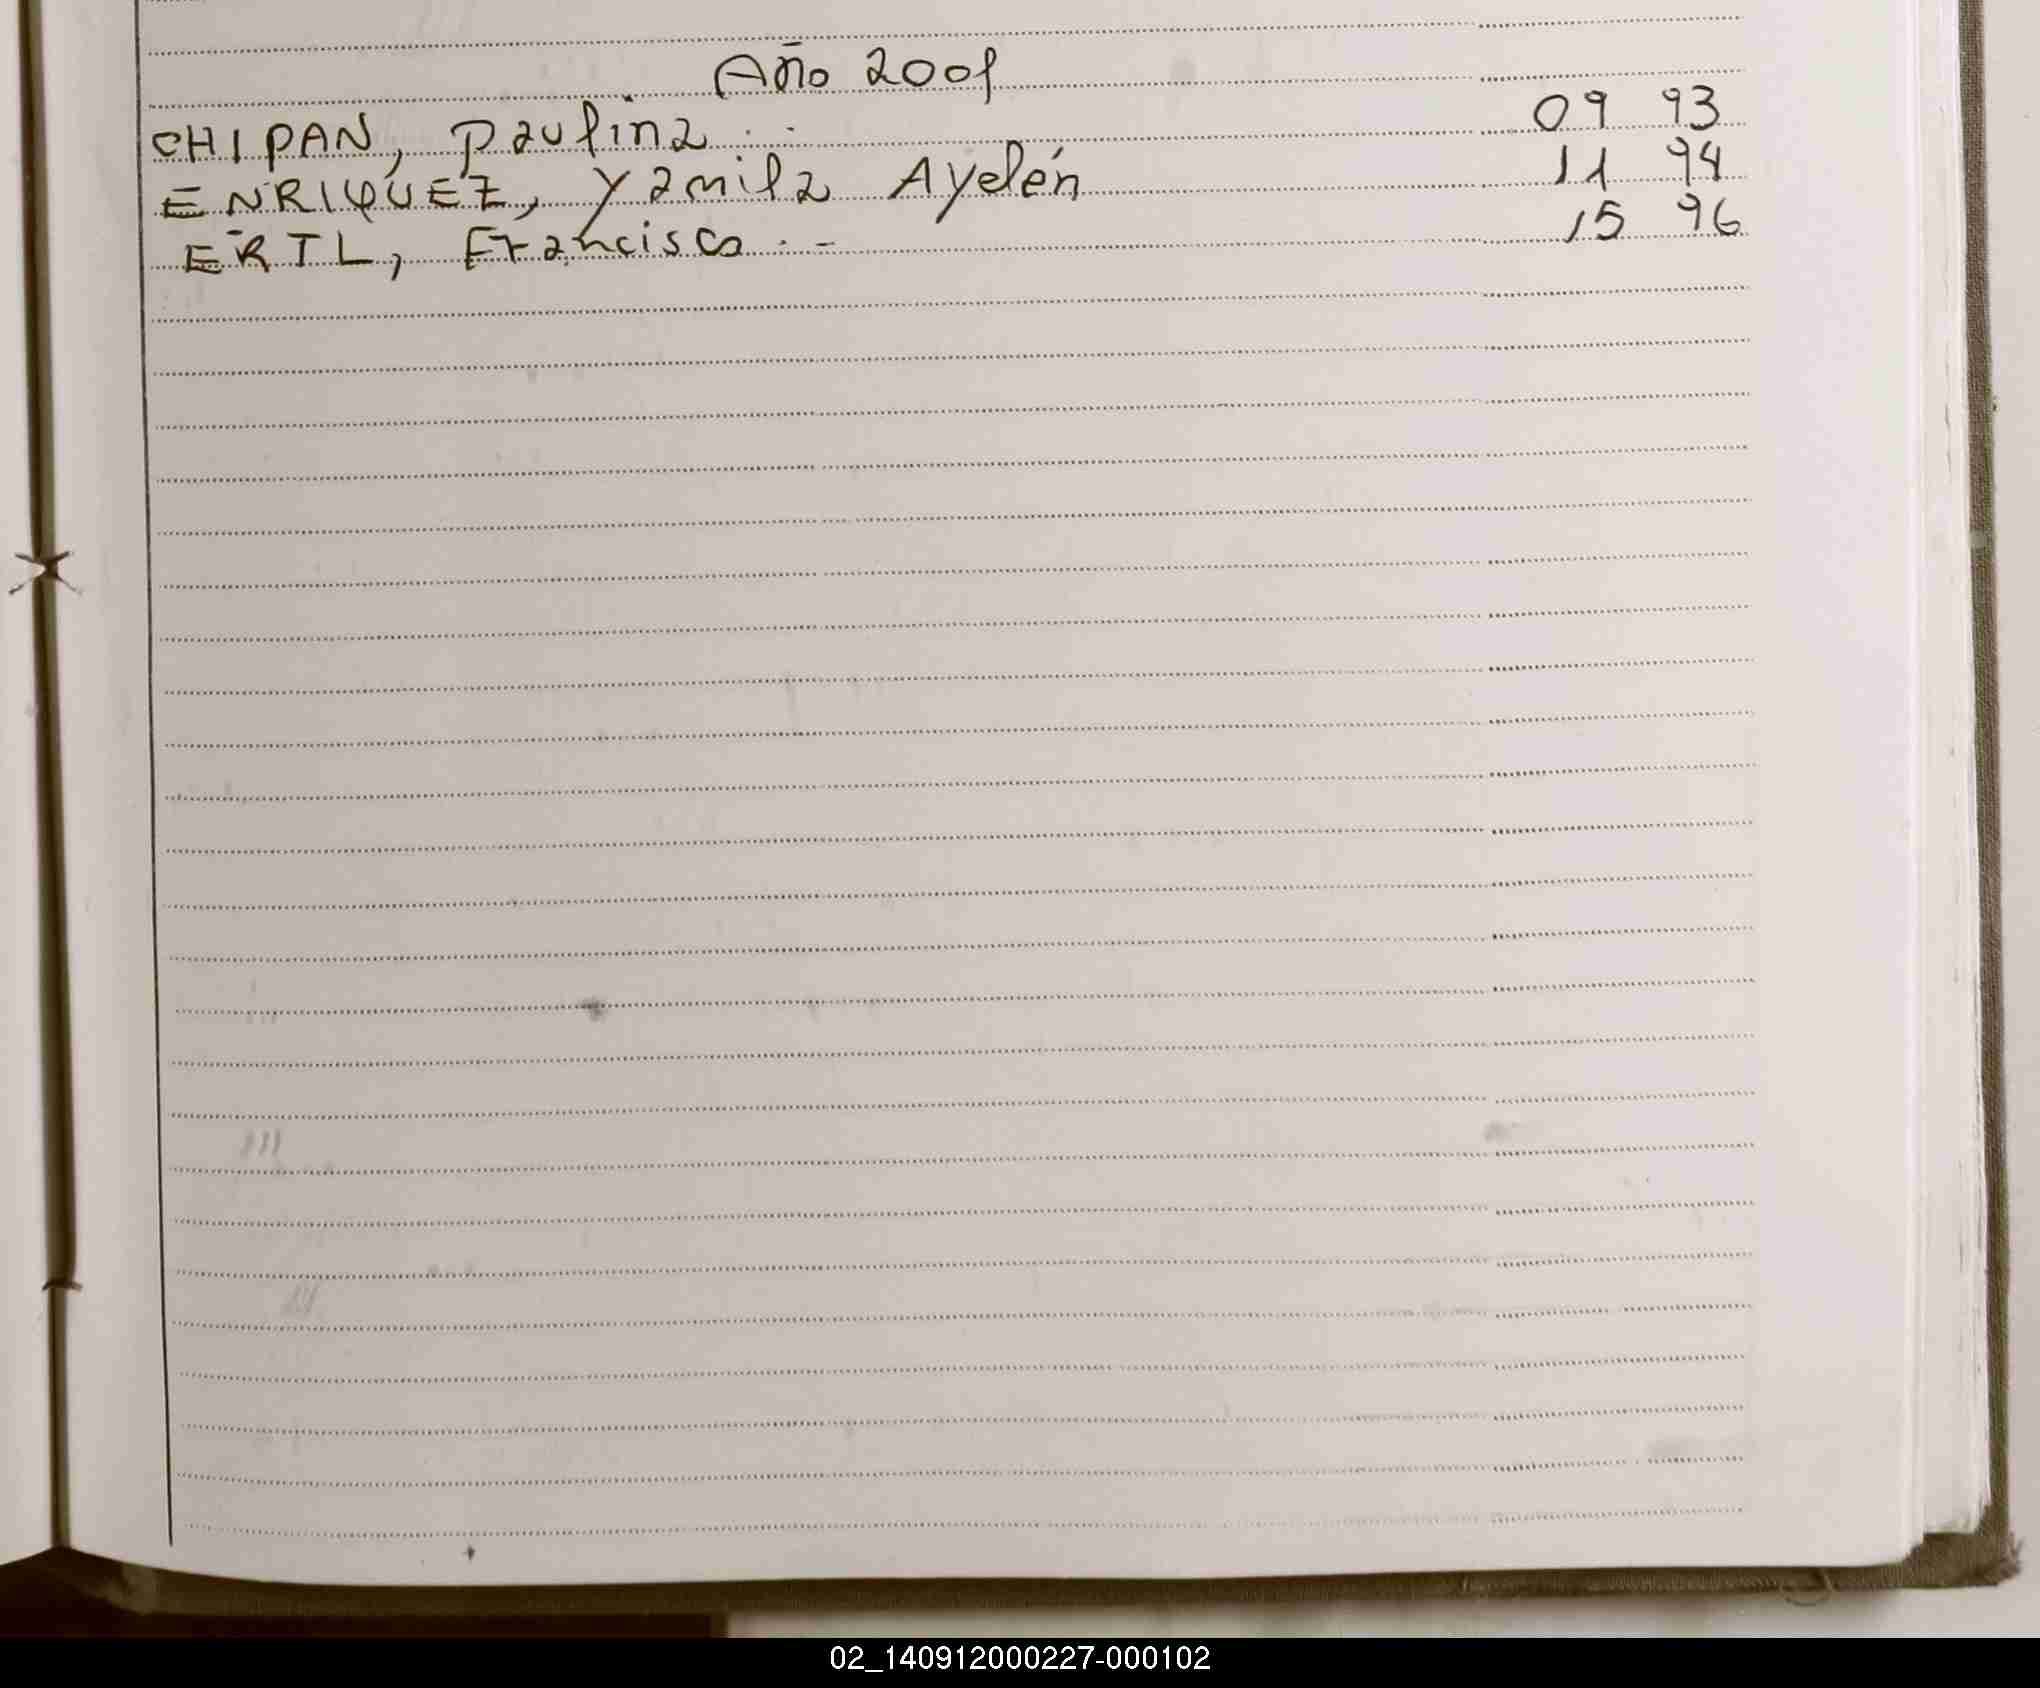 Año 2001
CHIPAN, Paulina 09 93
ENRIQUEZ, Yamila Ayelén 11 94
ERTL, Francisco 15 96
02_140912000227-000102